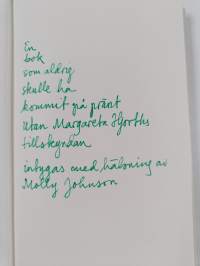 En
bok
som aldrig
skulle ha
kommit på pränt
utan Margareta Hjorths
tillskyndan
intygas med hälsning av
Molly Johnson